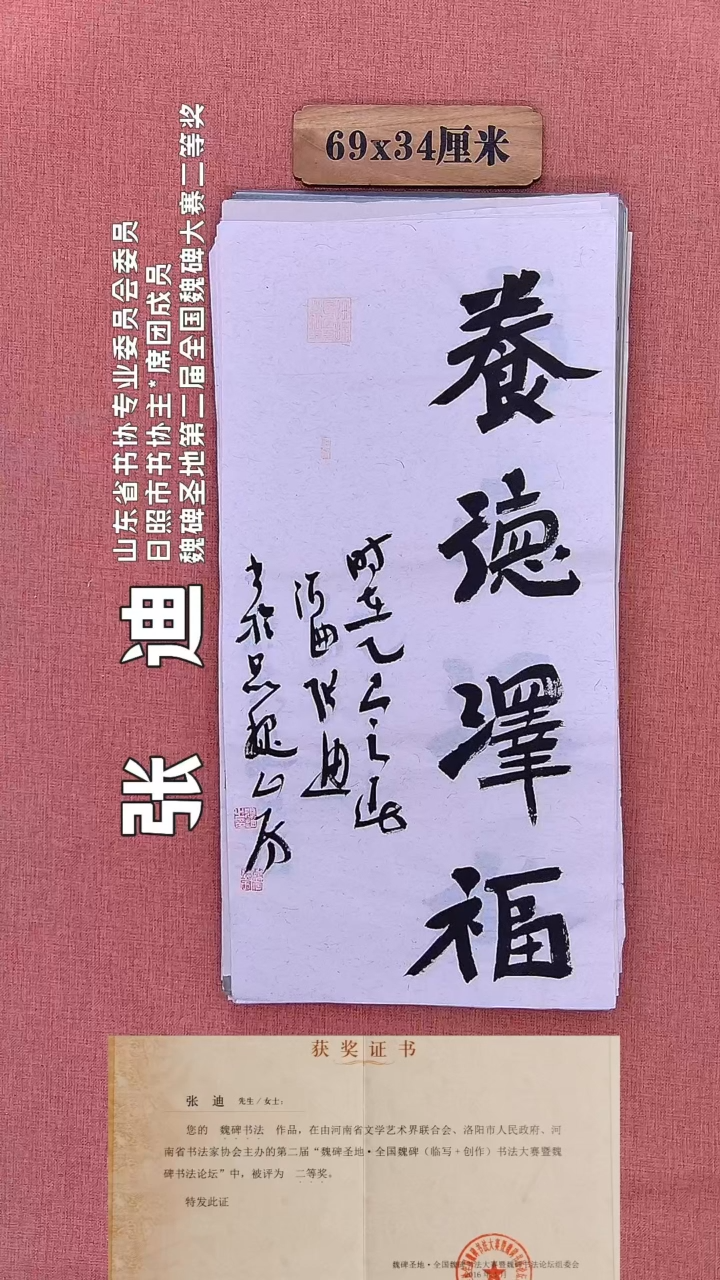 69x34厘米
山东省书协专业委员会委员
日照市书协主*席团成员
魏碑圣地第二届全国魏碑大赛二等奖
张迪
養德澤福
时在乙巳之春
河曲张迪
书於思魏山房
获奖证书
张 迪 先生/女士:
您的 魏碑书法 作品，在由河南省文学艺术界联合会、洛阳市人民政府、河
南省书法家协会主办的第二届“魏碑圣地·全国魏碑（临写+创作）书法大赛暨魏
碑书法论坛”中，被评为 二等奖。
特发此证
魏碑圣地·全国魏碑书法大赛暨魏碑书法论坛组委会